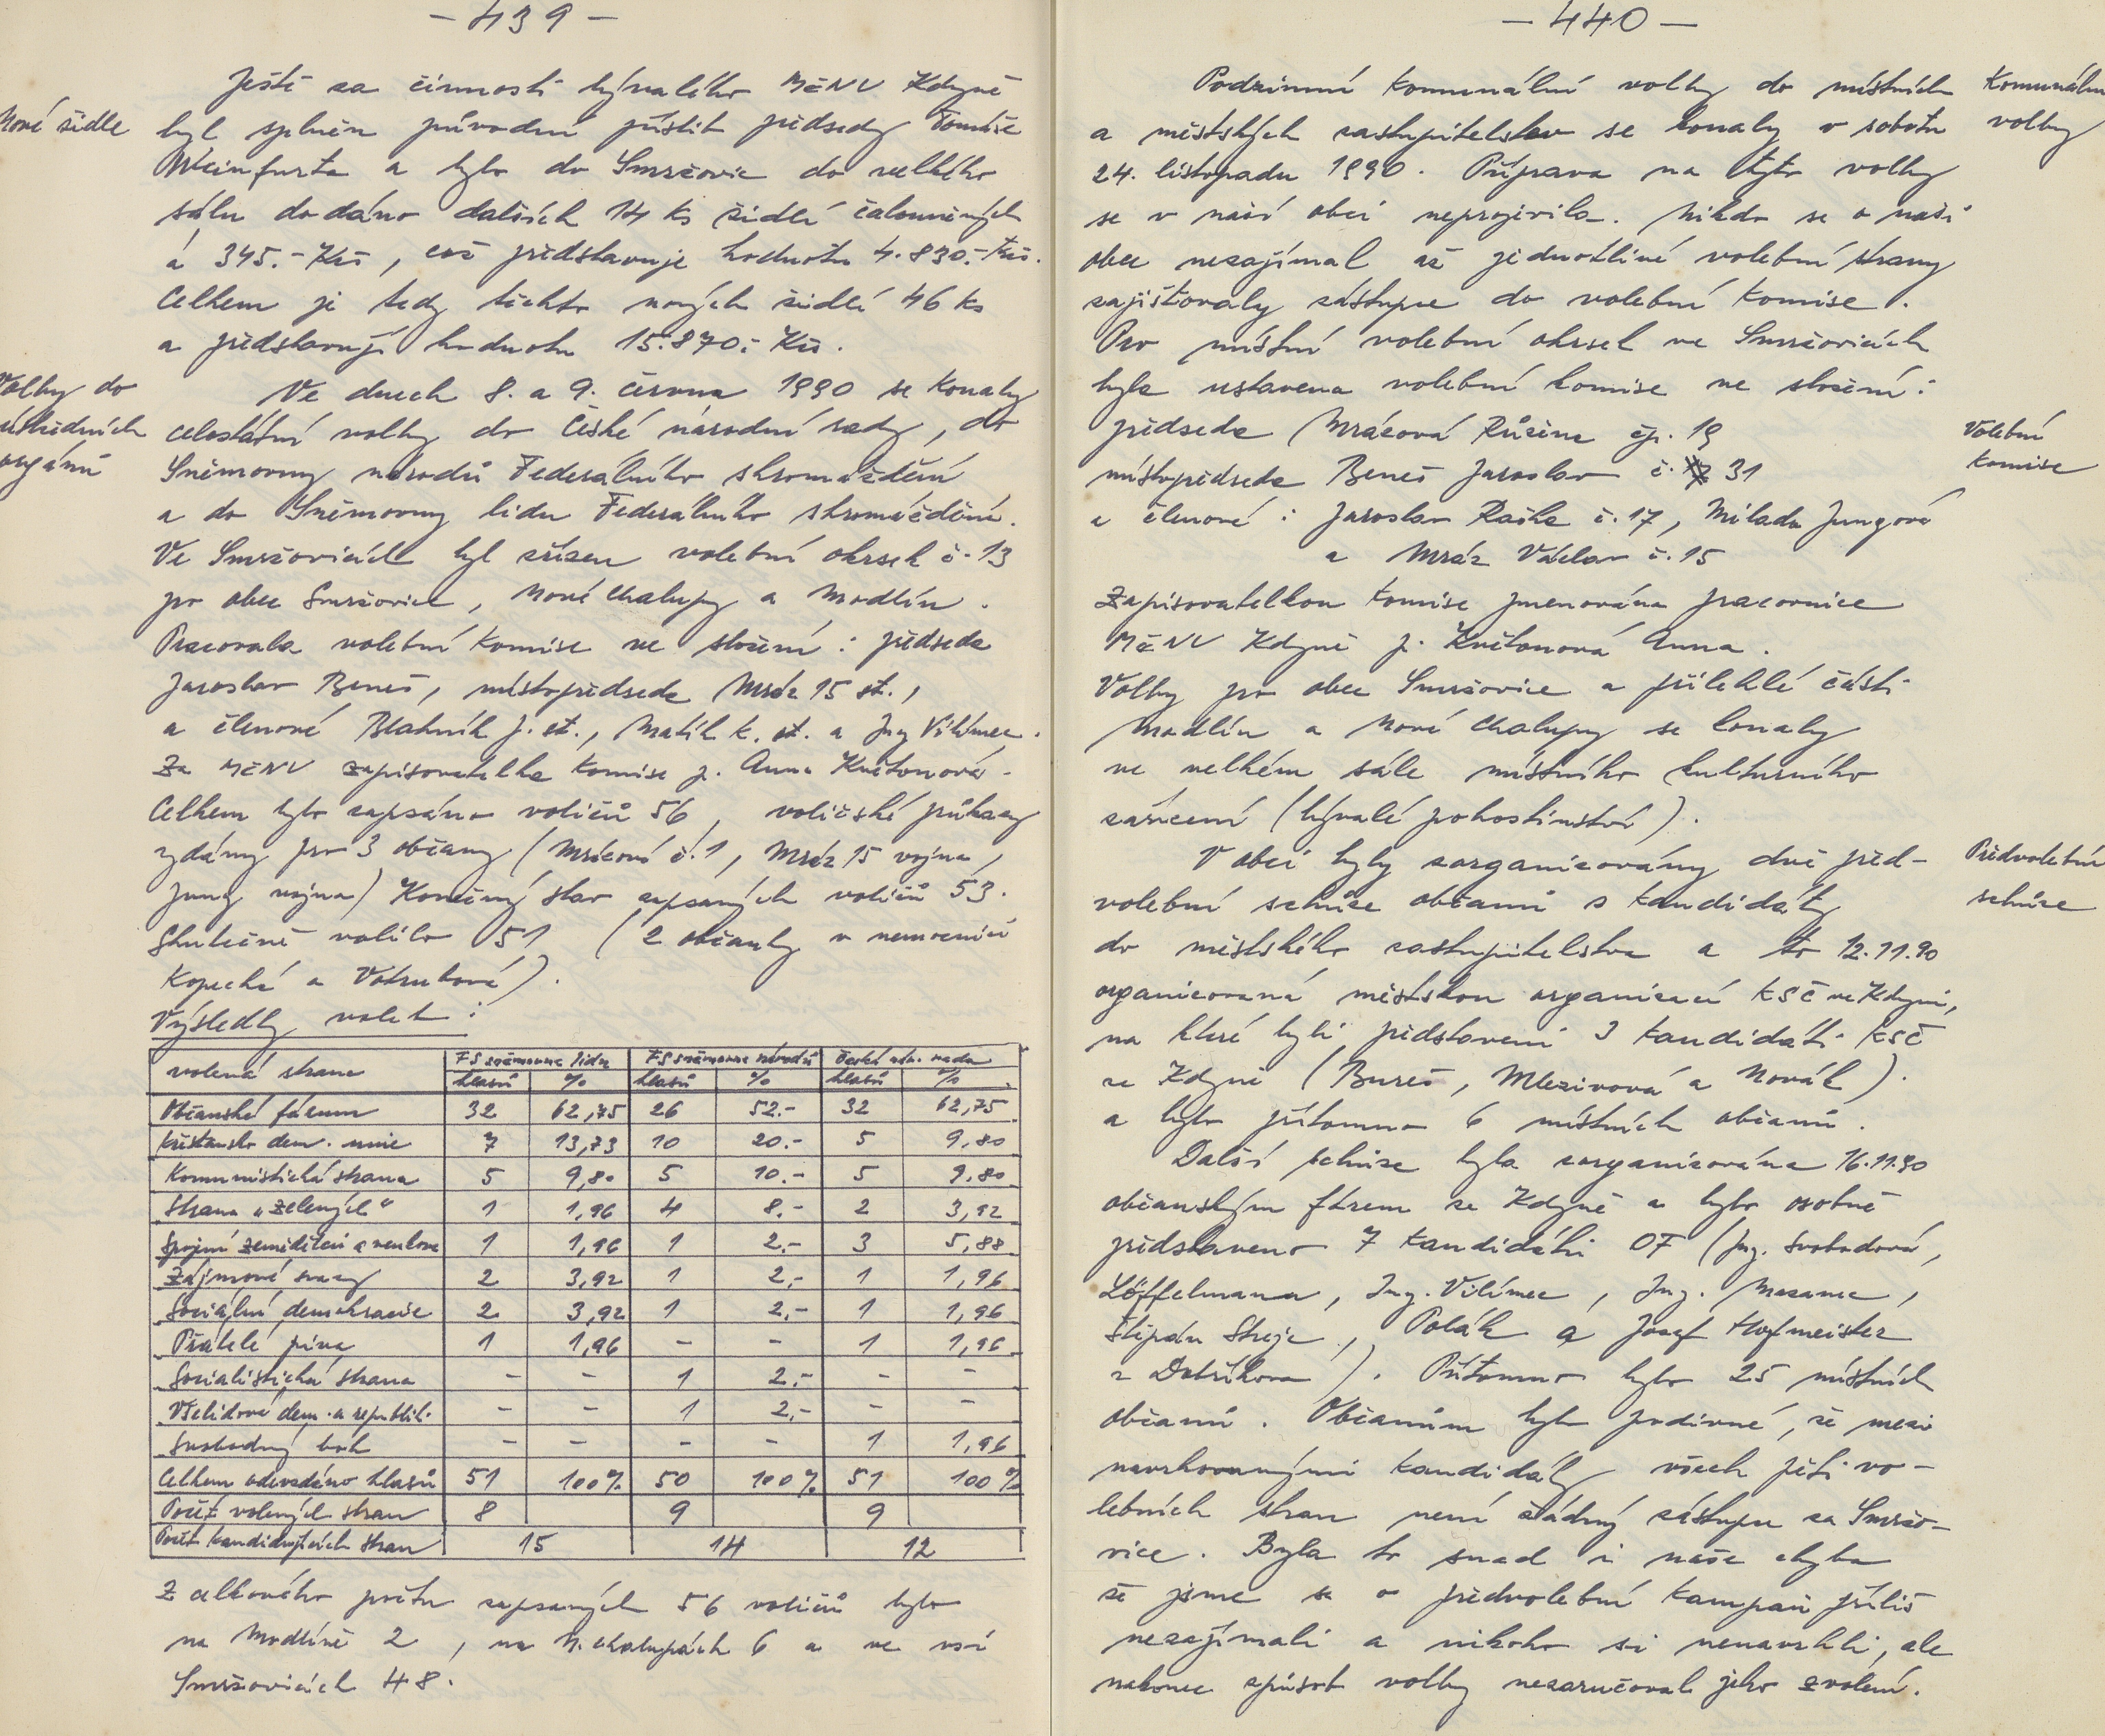 - 439 -
Nové židle
Ještě za činnosti bývalého MěNV Kdyně
byl splněn původní příslib předsedy Tomáše
Weinfurta a bylo do Smržovic do velkého
sálu dodáno dalších 14 ks židlí čalouněných
á 345.- Kčs, což představuje hodnotu 4.830.- Kčs.
Celkem je tedy těchto nových židlí 46 ks
a představují hodnotu 15.870.- Kčs.
Volby do
ústředních
orgánů
Ve dnech 8. a 9. června 1990 se konaly
celostátní volby do České národní rady, do
Sněmovny národů Federálního shromáždění
a do Sněmovny lidu Federálního shromáždění.
Ve Smržovicích byl zřízen volební okrsek č. 13
pro obce Smržovice, Nové Chalupy a Modlín.
Pracovala volební komise ve složení: předseda
Jaroslav Beneš, místopředseda Mráz 15 st.,
a členové Blahník J. st., Matík K. st. a Ing Vilímec.
Za MěNV zapisovatelka komise p. Anna Květoňová.
Celkem bylo zapsáno voličů 56, voličské průkazy
vydány pro 3 občany (Mrázová č. 1, Mráz 15 vojna,
Jung vojna) Konečný stav zapsaných voličů 53.
Skutečně volilo 51 (2 občanky v nemocnici
Kopecká a Votrubová).
Výsledky voleb:
volená strana FS sněmovna lidu FS sněmovna národů Česká nár. rada
hlasů % hlasů % hlasů %
Občanské fórum 32 62,75 26 52.- 32 62,75
Křesťansko dem. unie 7 13,73 10 20.- 5 9,80
Komunistická strana 5 9,80 5 10.- 5 9,80
Strana „Zelených“ 1 1,96 4 8.- 2 3,92
Spojení zemědělců a venkova 1 1,96 1 2,- 3 5,88
Zájmové svazy 2 3,92 1 2,- 1 1,96
Sociální demokracie 2 3,92 1 2,- 1 1,96
Přátelé piva 1 1,96 - - 1 1,96
Socialistická strana - - 1 2,- - -
Všelidové dem. a republik. - - 1 2,- - -
Svobodný bok - - - - 1 1,96
Celkem odevzdáno hlasů 51 100% 50 100% 51 100%
Počet volených stran 8 9 9
Počet kandidujících stran 15 14 12
Z celkového počtu zapsaných 56 voličů bylo
na Modlíně 2, na N. Chalupách 6 a ve vsi
Smržovicích 48.
- 440 -
Komunální
volby
Podzimní komunální volby do místních
a městských zastupitelstev se konaly v sobotu
24. listopadu 1990. Příprava na tyto volby
se v naší obci neprojevila. Nikdo se o naši
obec nezajímal až jednotlivé volební strany
zajišťovaly zástupce do volební komise.
Pro místní volební okrsek ve Smržovicích
byla ustavena volební komise ve složení:
Volební
komise
předseda Mrázová Růžena čp. 19
místopředseda Beneš Jaroslav č. 31
a členové: Jaroslav Raška č. 17, Milada Jungová
a Mráz Václav č. 15
Zapisovatelkou komise jmenována pracovnice
MěNV Kdyně p. Květoňová Anna.
Volby pro obec Smržovice a přilehlé části
Modlín a Nové Chalupy se konaly
ve velkém sále místního kulturního
zařízení (bývalé pohostinství).
Předvolební
schůze
V obci byly zorganizovány dvě před-
volební schůze občanů s kandidáty
do městského zastupitelstva a to 12.11.90
organizovaná městskou organizací KSČ ve Kdyni,
na které byli představeni 3 kandidáti KSČ
ze Kdyně (Bureš, Mlezivová a Novák).
a bylo přítomno 6 místních občanů.
Další schůze byla zorganizována 16.11.90
občanským fórem ze Kdyně a bylo osobně
představeno 7 kandidátů OF (Ing. Svobodová,
Löffelmann, Ing. Vilímec, Ing. Mezanec,
Štěpán Strejc, Polák a Josef Hofmeister
z Dobříkova). Přítomno bylo 25 místních
občanů. Občanům bylo podivné, že mezi
navrhovanými kandidáty všech pěti vo-
lebních stran není žádný zástupce za Smržo-
vice. Byla to snad i naše chyba
že jsme se o předvolební kampaň příliš
nezajímali a nikoho si nenavrhli, ale
nakonec způsob volby nezaručoval jeho zvolení.